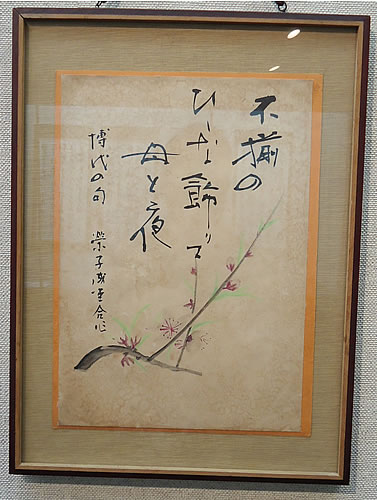 不揃の
ひいな飾りて
母と夜
博代の句
榮子
合作